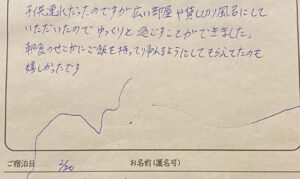 子供連れだったのですが広い部屋や貸し切り風呂にして
いただいたのでゆっくりと過ごすことができました。
朝食のせきかにご飯を持って来れるようにしてもらえてたのも
嬉しかったです
ご宿泊日 2/20 お名前(匿名可)